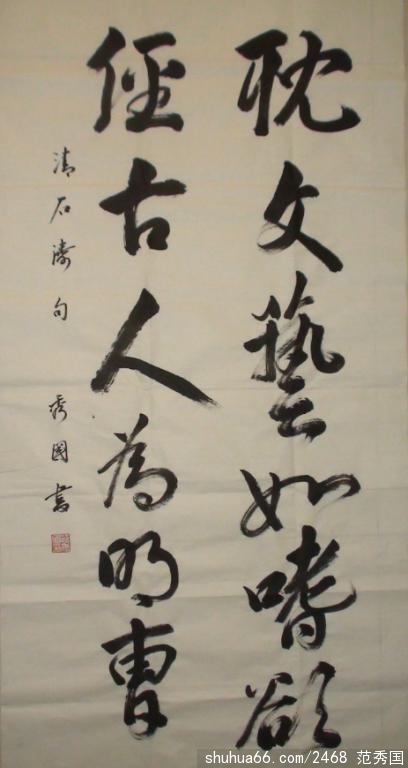 耽文藝如嗜欲
俓古人為朋曹
清石濤句 秀國書
shuhua66.com/2468 范秀国